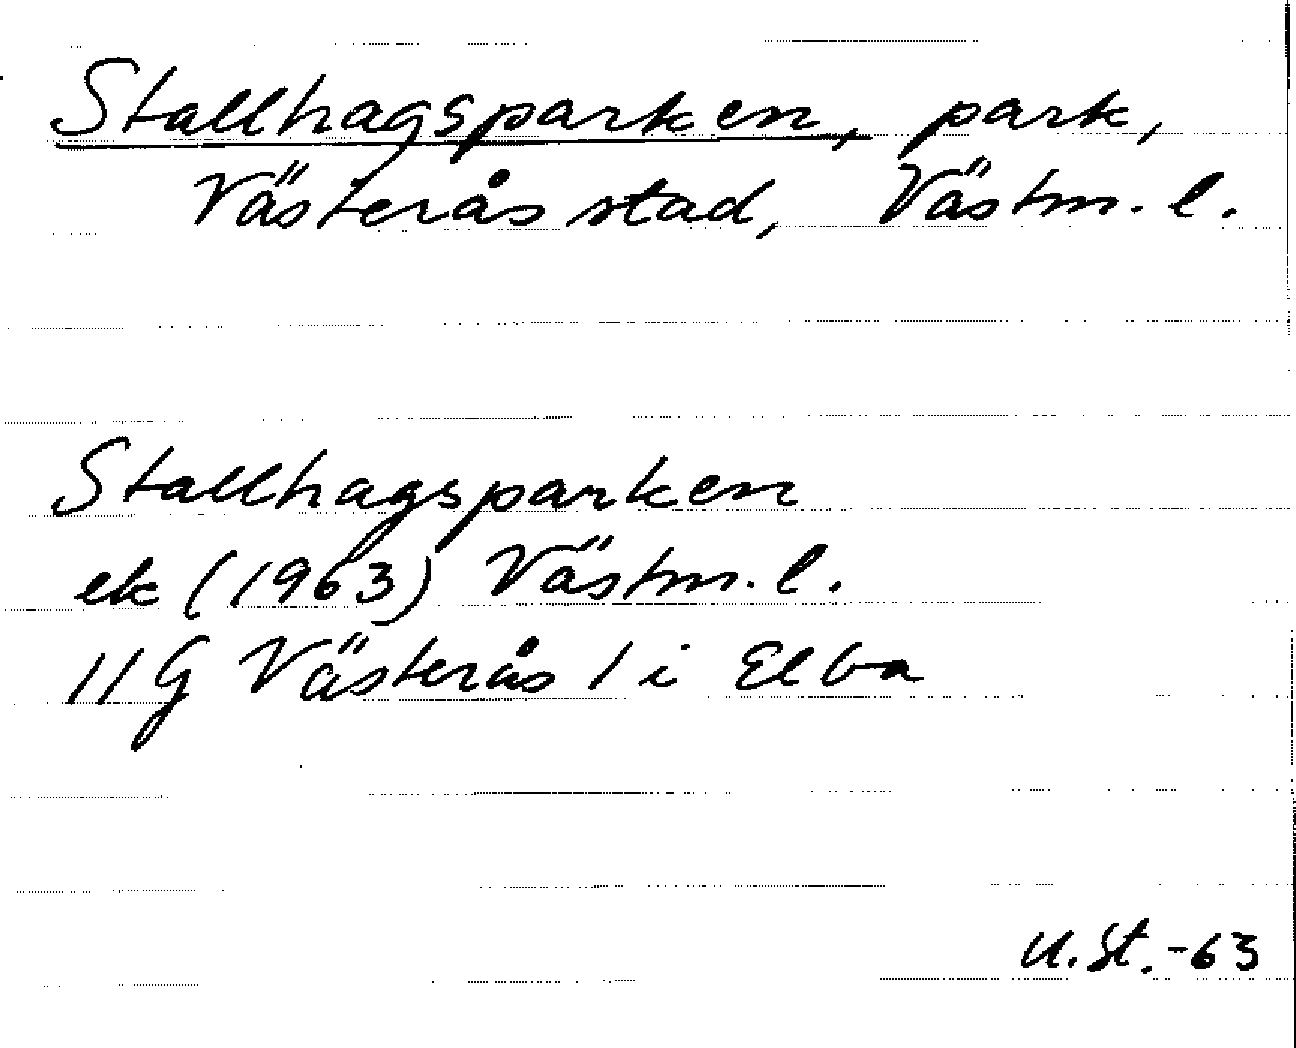 Stallhagsparken, park,
Västerås stad, Västm. l.
Stallhagsparken
ek (1963) Västm. l.
11G Västerås 1 i Elba
U.St.-63